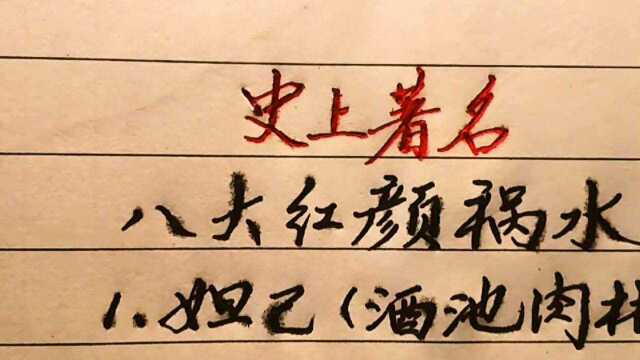 史上著名
八大红颜祸水
1.妲己(酒池肉林